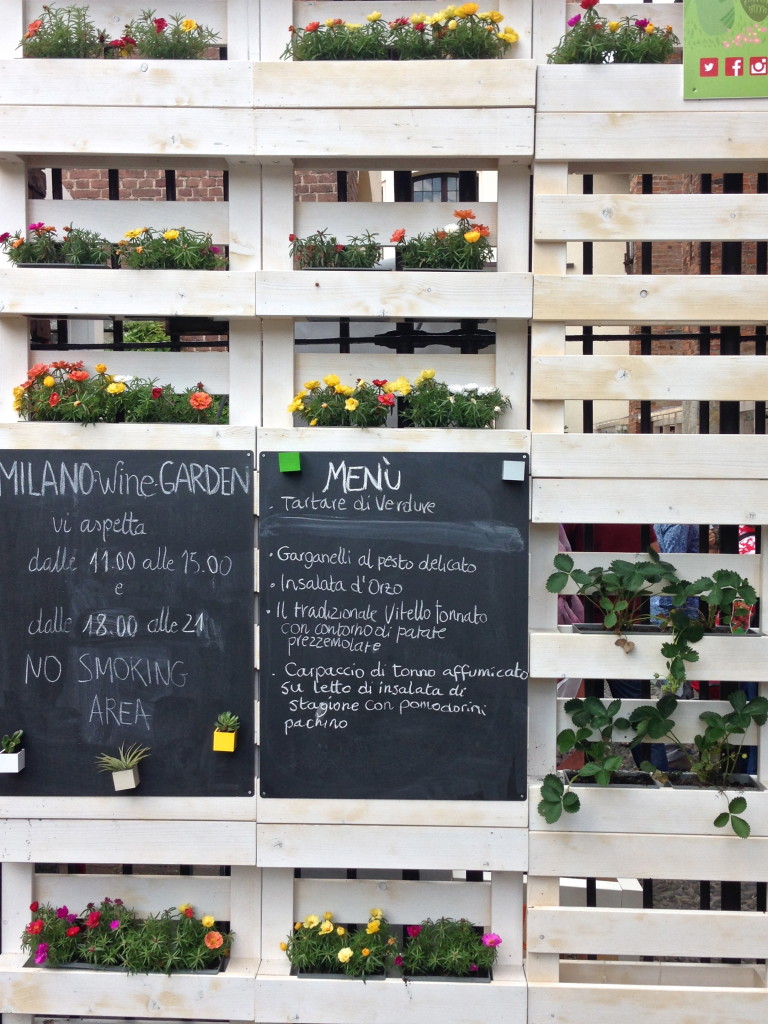 MILANO·wine·GARDEN
vi aspetta
dalle 11.00 alle 15.00
e
dalle 18.00 alle 21
NO SMOKING
AREA
MENÙ
. Tartare di Verdure
• Garganelli al pesto delicato
• Insalata d'Orzo
• Il tradizionale Vitello tonnato
con contorno di patate
prezzemolate
. Carpaccio di tonno affumicato
su letto di insalata di
stagione con pomodorini
pachino